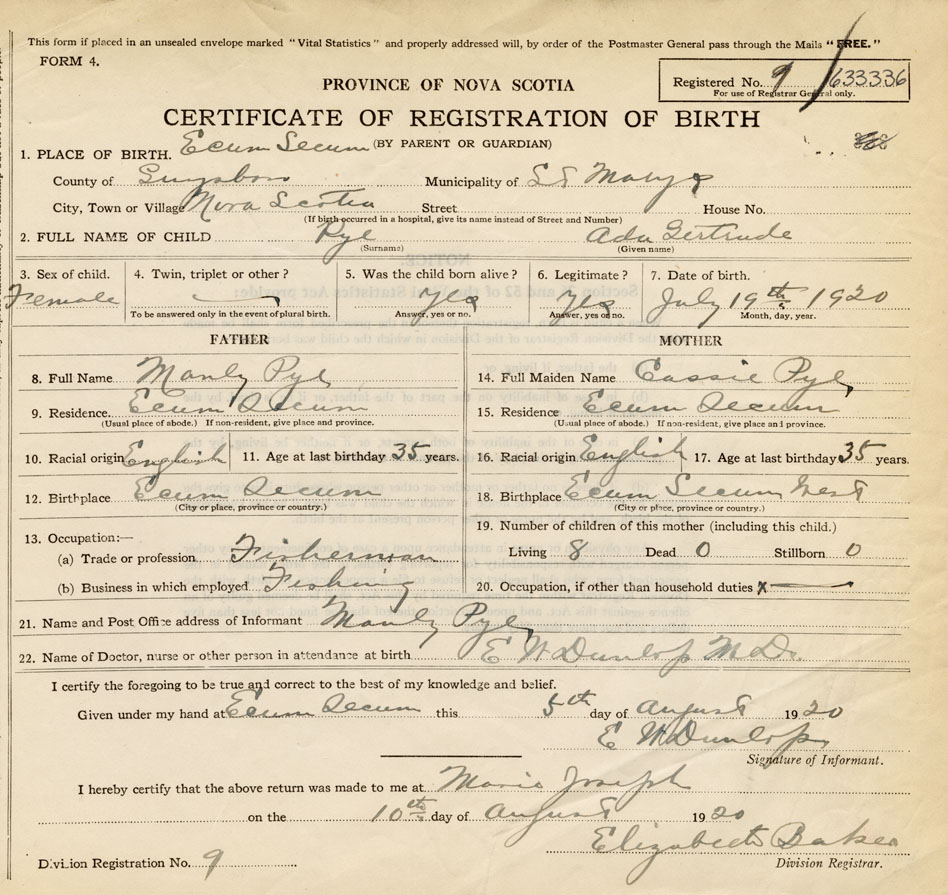 This form if placed in an unsealed envelope marked "Vital Statistics" and properly addressed will, by order of the Postmaster General pass through the Mails "FREE."
FORM 4.
PROVINCE OF NOVA SCOTIA
Registered No. 9 633336
For use of Registrar General only.
CERTIFICATE OF REGISTRATION OF BIRTH
(BY PARENT OR GUARDIAN)
1. PLACE OF BIRTH. Ecum Secum
County of Guysboro Municipality of St Marys
City, Town or Village Nova Scotia Street House No.
(If birth occurred in a hospital, give its name instead of Street and Number)
2. FULL NAME OF CHILD Pye Ada Gertrude
(Surname) (Given name)
3. Sex of child. 4. Twin, triplet or other? 5. Was the child born alive? 6. Legitimate? 7. Date of birth.
Female Yes Yes July 19th 1920
To be answered only in the event of plural birth. Answer, yes or no. Answer, yes or no. Month, day, year.
FATHER
8. Full Name Manly Pye
9. Residence. Ecum Secum
(Usual place of abode.) If non-resident, give place and province.
10. Racial origin English 11. Age at last birthday 35 years.
12. Birthplace Ecum Secum
(City or place, province or country.)
13. Occupation:—
(a) Trade or profession Fisherman
(b) Business in which employed Fishing
MOTHER
14. Full Maiden Name Cassie Pye
15. Residence Ecum Secum
(Usual place of abode.) If non-resident, give place and province.
16. Racial origin English 17. Age at last birthday 35 years.
18. Birthplace Ecum Secum West
(City or place, province or country.)
19. Number of children of this mother (including this child.)
Living 8 Dead 0 Stillborn 0
20. Occupation, if other than household duties x
21. Name and Post Office address of Informant Manly Pye
22. Name of Doctor, nurse or other person in attendance at birth E W Dunlop M D.
I certify the foregoing to be true and correct to the best of my knowledge and belief.
Given under my hand at Ecum Secum this 5th day of August 1920
E W Dunlop
Signature of Informant.
I hereby certify that the above return was made to me at Marie Joseph
on the 10th day of August 1920
Elizabeth Baker
Division Registrar.
Division Registration No. 9